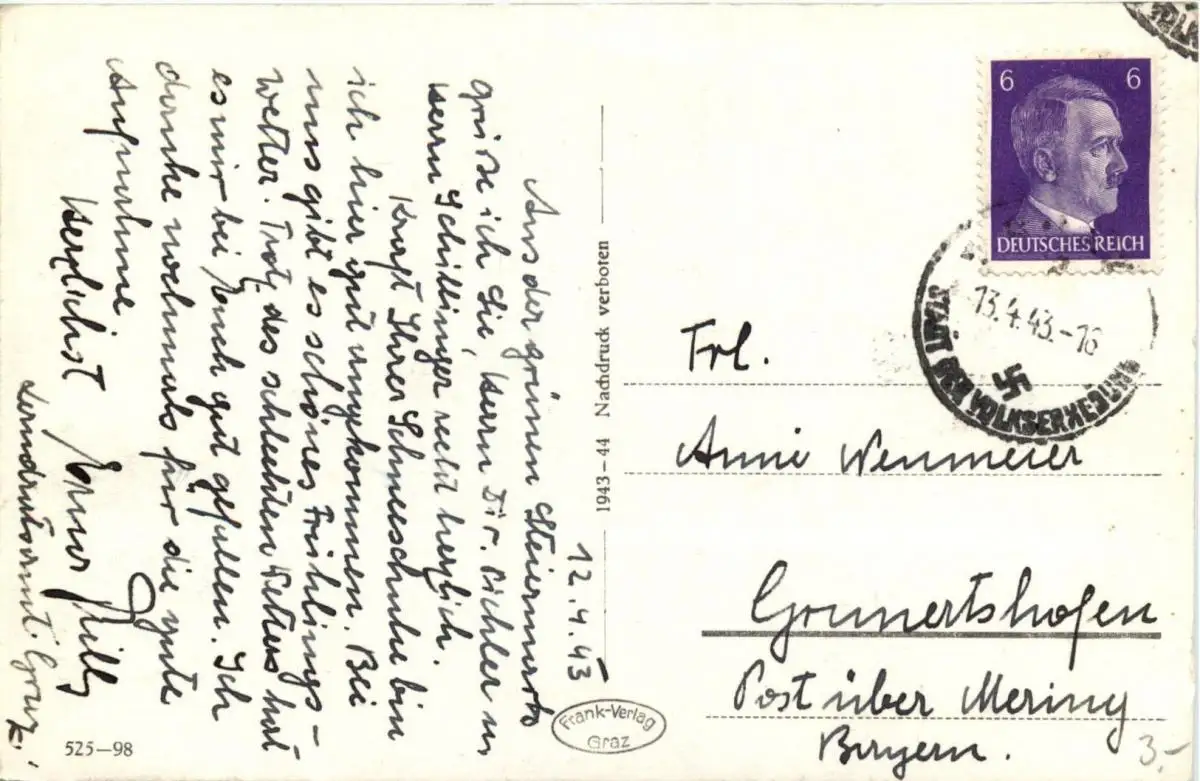 12.4.43
Aus der grünen Steiermark
grüße ich Sie, Herrn Dir. Pichler u
Herrn Schillinger recht herzlich.
Kraft Ihrer Schneeschuhe bin
ich hier gut angekommen. Bei
uns gibt es schönes Frühlings-
wetter. Trotz des schlechten Wetters hat
es mir bei Euch gut gefallen. Ich
danke nochmals für die gute
Aufnahme
Herzlichst
Landratsamt. Graz.
525-98
1943-44 Nachdruck verboten
Frank-Verlag
Graz
6 6
DEUTSCHES REICH
13.4.43.-16
STADT DER VOLKSERHEBUNG
Frl.
Anni Wenmeier
Gunnertshofen
Post über Mering
Bayern.
3.-